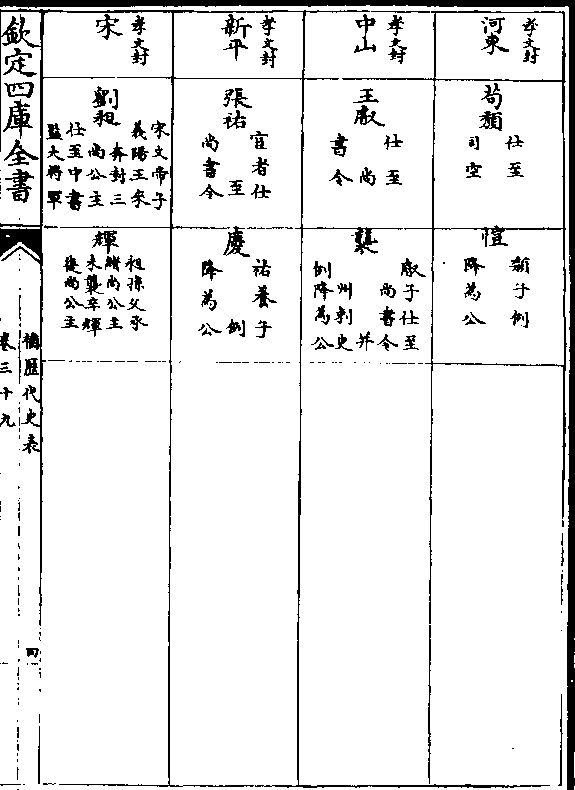 河東
孝文封
苟頹
仕至
司空
愷
頹子例
降為公
中山
孝文封
王叡
仕至
尚
書令
襲
叡子仕至
尚書令并
州刺史
例降為公
新平
孝文封
張祐
宦者仕
至
尚書令
慶
祐養子
例
降為公
宋
孝文封
劉昶
宋文帝子
義陽王來
奔封三
尚公主
仕至中書
監大將軍
輝
昶孫父承
緒尚公主
未襲卒輝
後尚公主
欽定四庫全書
補歷代史表
卷三十九
四